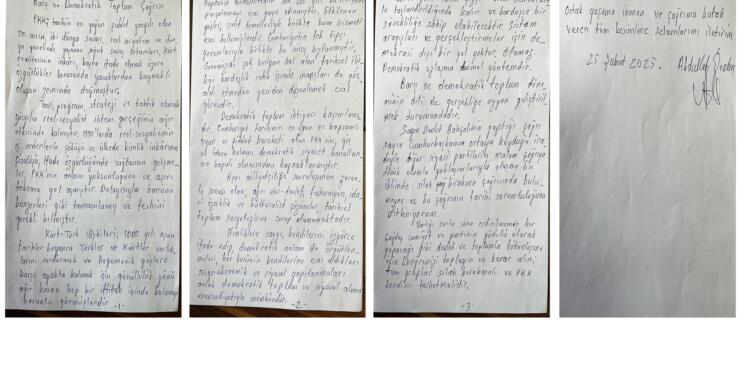 Barış ve Demokratik Toplum Çağrısı
PKK; tarihin en yoğun şiddet yüzyılı olan
20. asrın, iki dünya savaşı, reel-sosyalizm ve dün-
ya genelinde yaşanan soğuk savaş ortamları, Kürt
realitesinin inkarı, başta ifade olmak üzere
özgürlükler konusunda yasaklardan kaynaklı
oluşan zeminde doğmuştur.
Teori, program, strateji ve taktik olarak
yüzyılın reel-sosyalist sistem gerçeğinin ağır
etkisinde kalmıştır. 1990'larda reel-sosyalizmin
iç nedenlerle çöküşü ve ülkede kimlik inkarının
çözülüşü, ifade özgürlüğünde sağlanan gelişme-
ler, PKK'nin anlam yoksunluğuna ve aşırı
tekrara yol açmıştır. Dolayısıyla ömrünü
benzerleri gibi tamamlamış ve feshini
gerekli kılmıştır.
Kürt-Türk ilişkileri; 1000 yılı aşan
tarihler boyunca Türkler ve Kürtler varlık-
larını sürdürmek ve hegemonik güçlere
karşı ayakta kalmak için gönüllülük yönü
ağır basan hep bir ittifak içinde kalmayı
zorunlu görmüşlerdir.
-1-
parçalamayı esas gaye edinmiştir. Etkilenen
güçler, sınıf temelleriyle birlikte buna hizmeti
esas bellemişlerdir. Cumhuriyetin tek tipçi
yorumlarıyla birlikte bu süreç hızlanmıştır.
Günümüzde çok kırılgan hal alan tarihsel iliş-
kiyi kardeşlik ruhu içinde inançları da göz
ardı etmeden yeniden düzenlemek esas
görevdir.
Demokratik toplum ihtiyacı kaçınılmaz-
dır. Cumhuriyet tarihinin en uzun ve kapsamlı
isyan ve şiddet hareketi olan PKK'nin, güç
ve taban bulması demokratik siyaset kanalları-
nın kapalı olmasından kaynaklanmıştır.
Aşırı milliyetçiliğe savruluşunun zorun-
lu sonucu olan; ayrı ulus-devlet, federasyon, ida-
ri özerklik ve kültüralist çözümler, tarihsel
toplum sosyolojisine cevap olamamaktadır.
Kimliklere saygı, kendilerini özgürce
ifade edip, demokratik anlamda örgütlen-
meleri, her kesimin kendilerine esas aldıkları
sosyo-ekonomik ve siyasal yapılanmaları
ancak demokratik toplum ve siyasal alanın
mevcudiyetiyle mümkündür.
-2-
le taçlandırıldığında kalıcı ve kardeşçe bir
sürekliliğe sahip olabilecektir. Sistem
arayışları ve gerçekleştirmeler için de-
mokrasi dışı bir yol yoktur. Olamaz.
Demokratik uzlaşma temel yöntemdir.
Barış ve demokratik toplum döne-
minin dili de gerçekliğe uygun geliştiril-
mek durumundadır.
Sayın Devlet Bahçeli'nin yaptığı çağrı
sayın Cumhurbaşkanının ortaya koyduğu ira-
deyle diğer siyasi partilerin malum çağrıya
dönük olumlu yaklaşımlarıyla oluşan bu
iklimde silah bırakma çağrısında bulu-
nuyor ve bu çağrının tarihi sorumluluğunu
üstleniyorum.
Varlığı zorla sona erdirilmemiş her
çağdaş cemiyet ve partinin gönüllü olarak
yapacağı gibi devlet ve toplumla bütünleşme
için kongrenizi toplayın ve karar alın;
tüm gruplar silah bırakmalı ve PKK
kendini feshetmelidir.
-3-
Ortak yaşama inanan ve çağrıma kulak
veren tüm kesimlere selamlarımı iletirim
25 Şubat 2025. Abdullah Öcalan